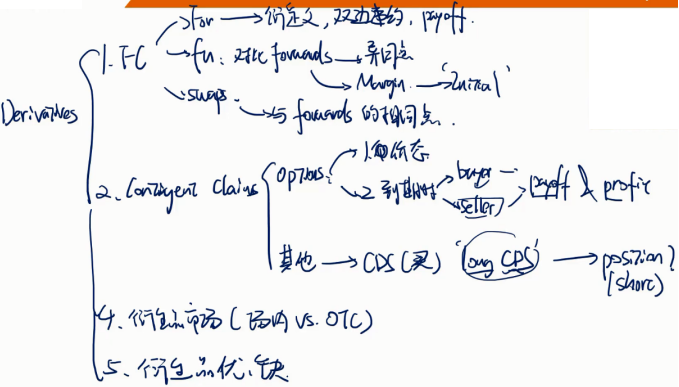 For → 衍定义, 双边违约, payoff.
1. FC → fu: 对比 forwards → 异同点
Margin → 'Initial'
Derivatives
swaps → 与 forwards 的相同点.
2. Contingent Claims Options: 1.
2. 到期时 buyer
seller payoff & profit
其他 → CDS (买) 'long CDS' → position?
(short)
4. 衍生品市场 (场内 vs. OTC)
5. 衍生品优、缺